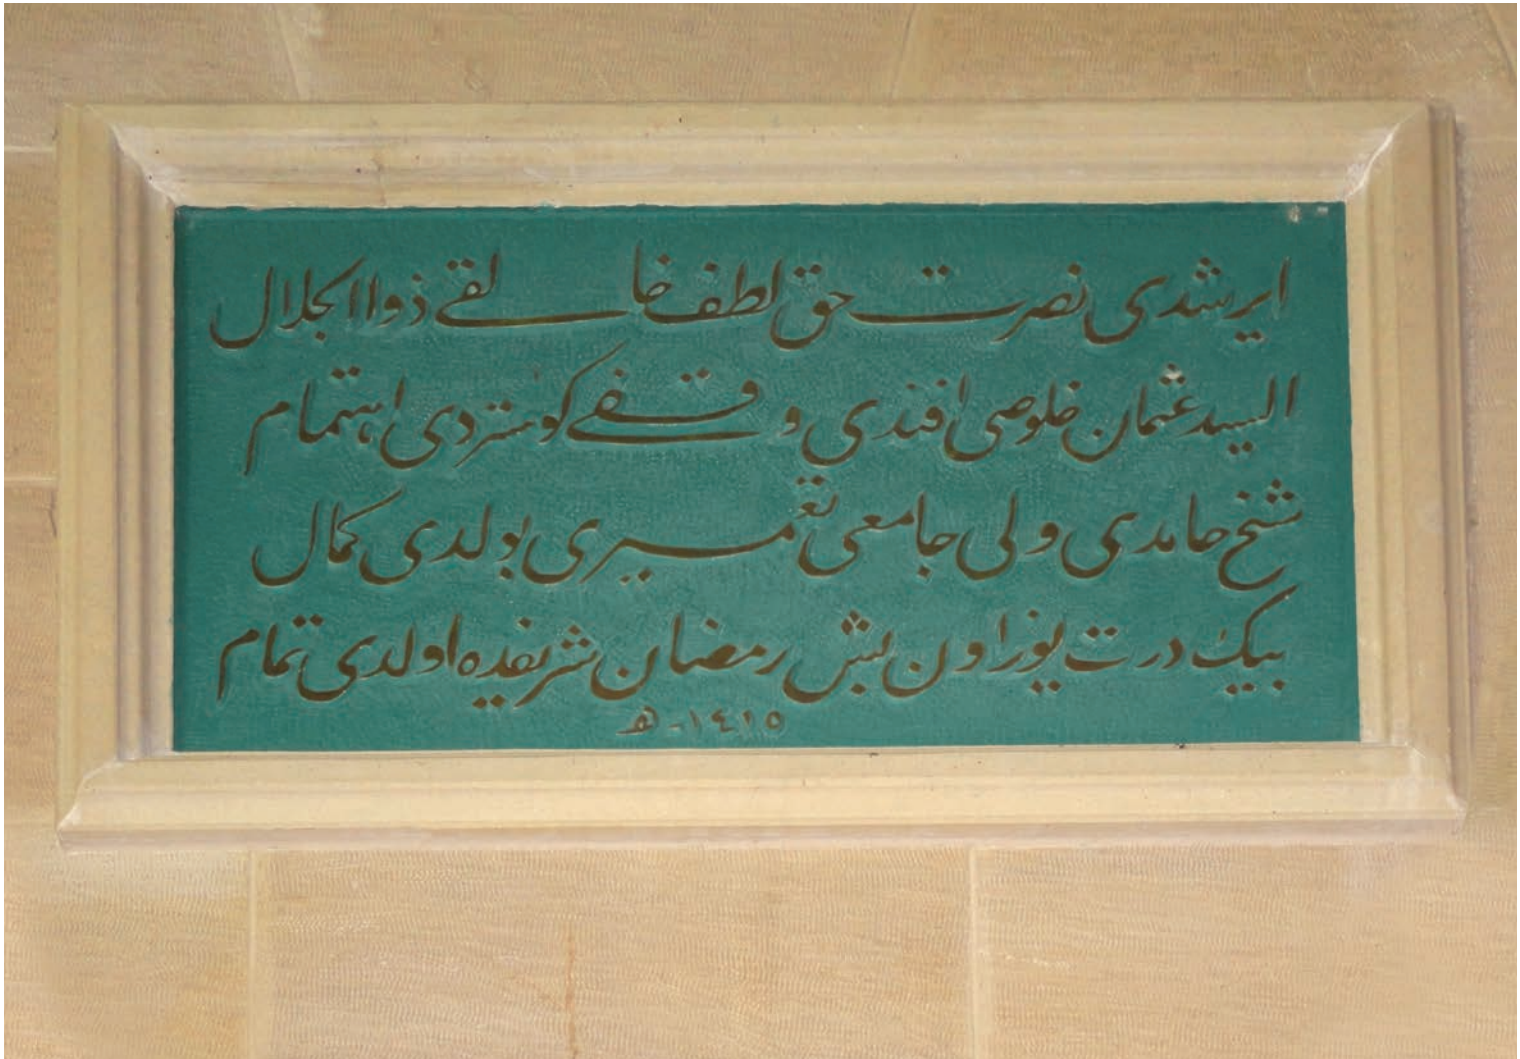 ايرشدى نصرت حق لطف خالقے ذواالجلال
السيد عثمان خلوصى افندى وقفے كوستردى اهتمام
شيخ حامدى ولى جامعى تعميرى بولدى كمال
بيك درت يوز اون بش رمضان شريفده اولدى تمام
١٤١٥-ھ